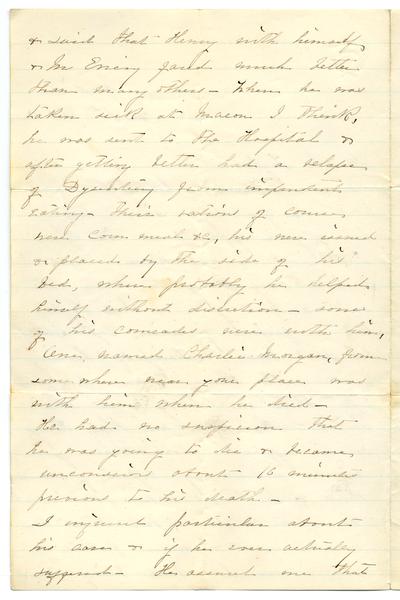 & said that Henry with himself
& Mr Emery fared much better
than many others - When he was
taken sick at Macon I think,
he was sent to the Hospital &
after getting better had a relapse
of Dysentery from imprudent
eating - Their rations of course
were Corn meal &c, his were issued
& placed by the side of his
bed, where probably he helped
himself without discretion - some
of his comrades were with him,
One, named Charlie Morgan, from
some where near your place was
with him when he died -
He had no suspicion that
he was going to die & became
unconscious about minutes
previous to his death -
I inquired particular about
his case & if he ever actually
suffered - He assured me that